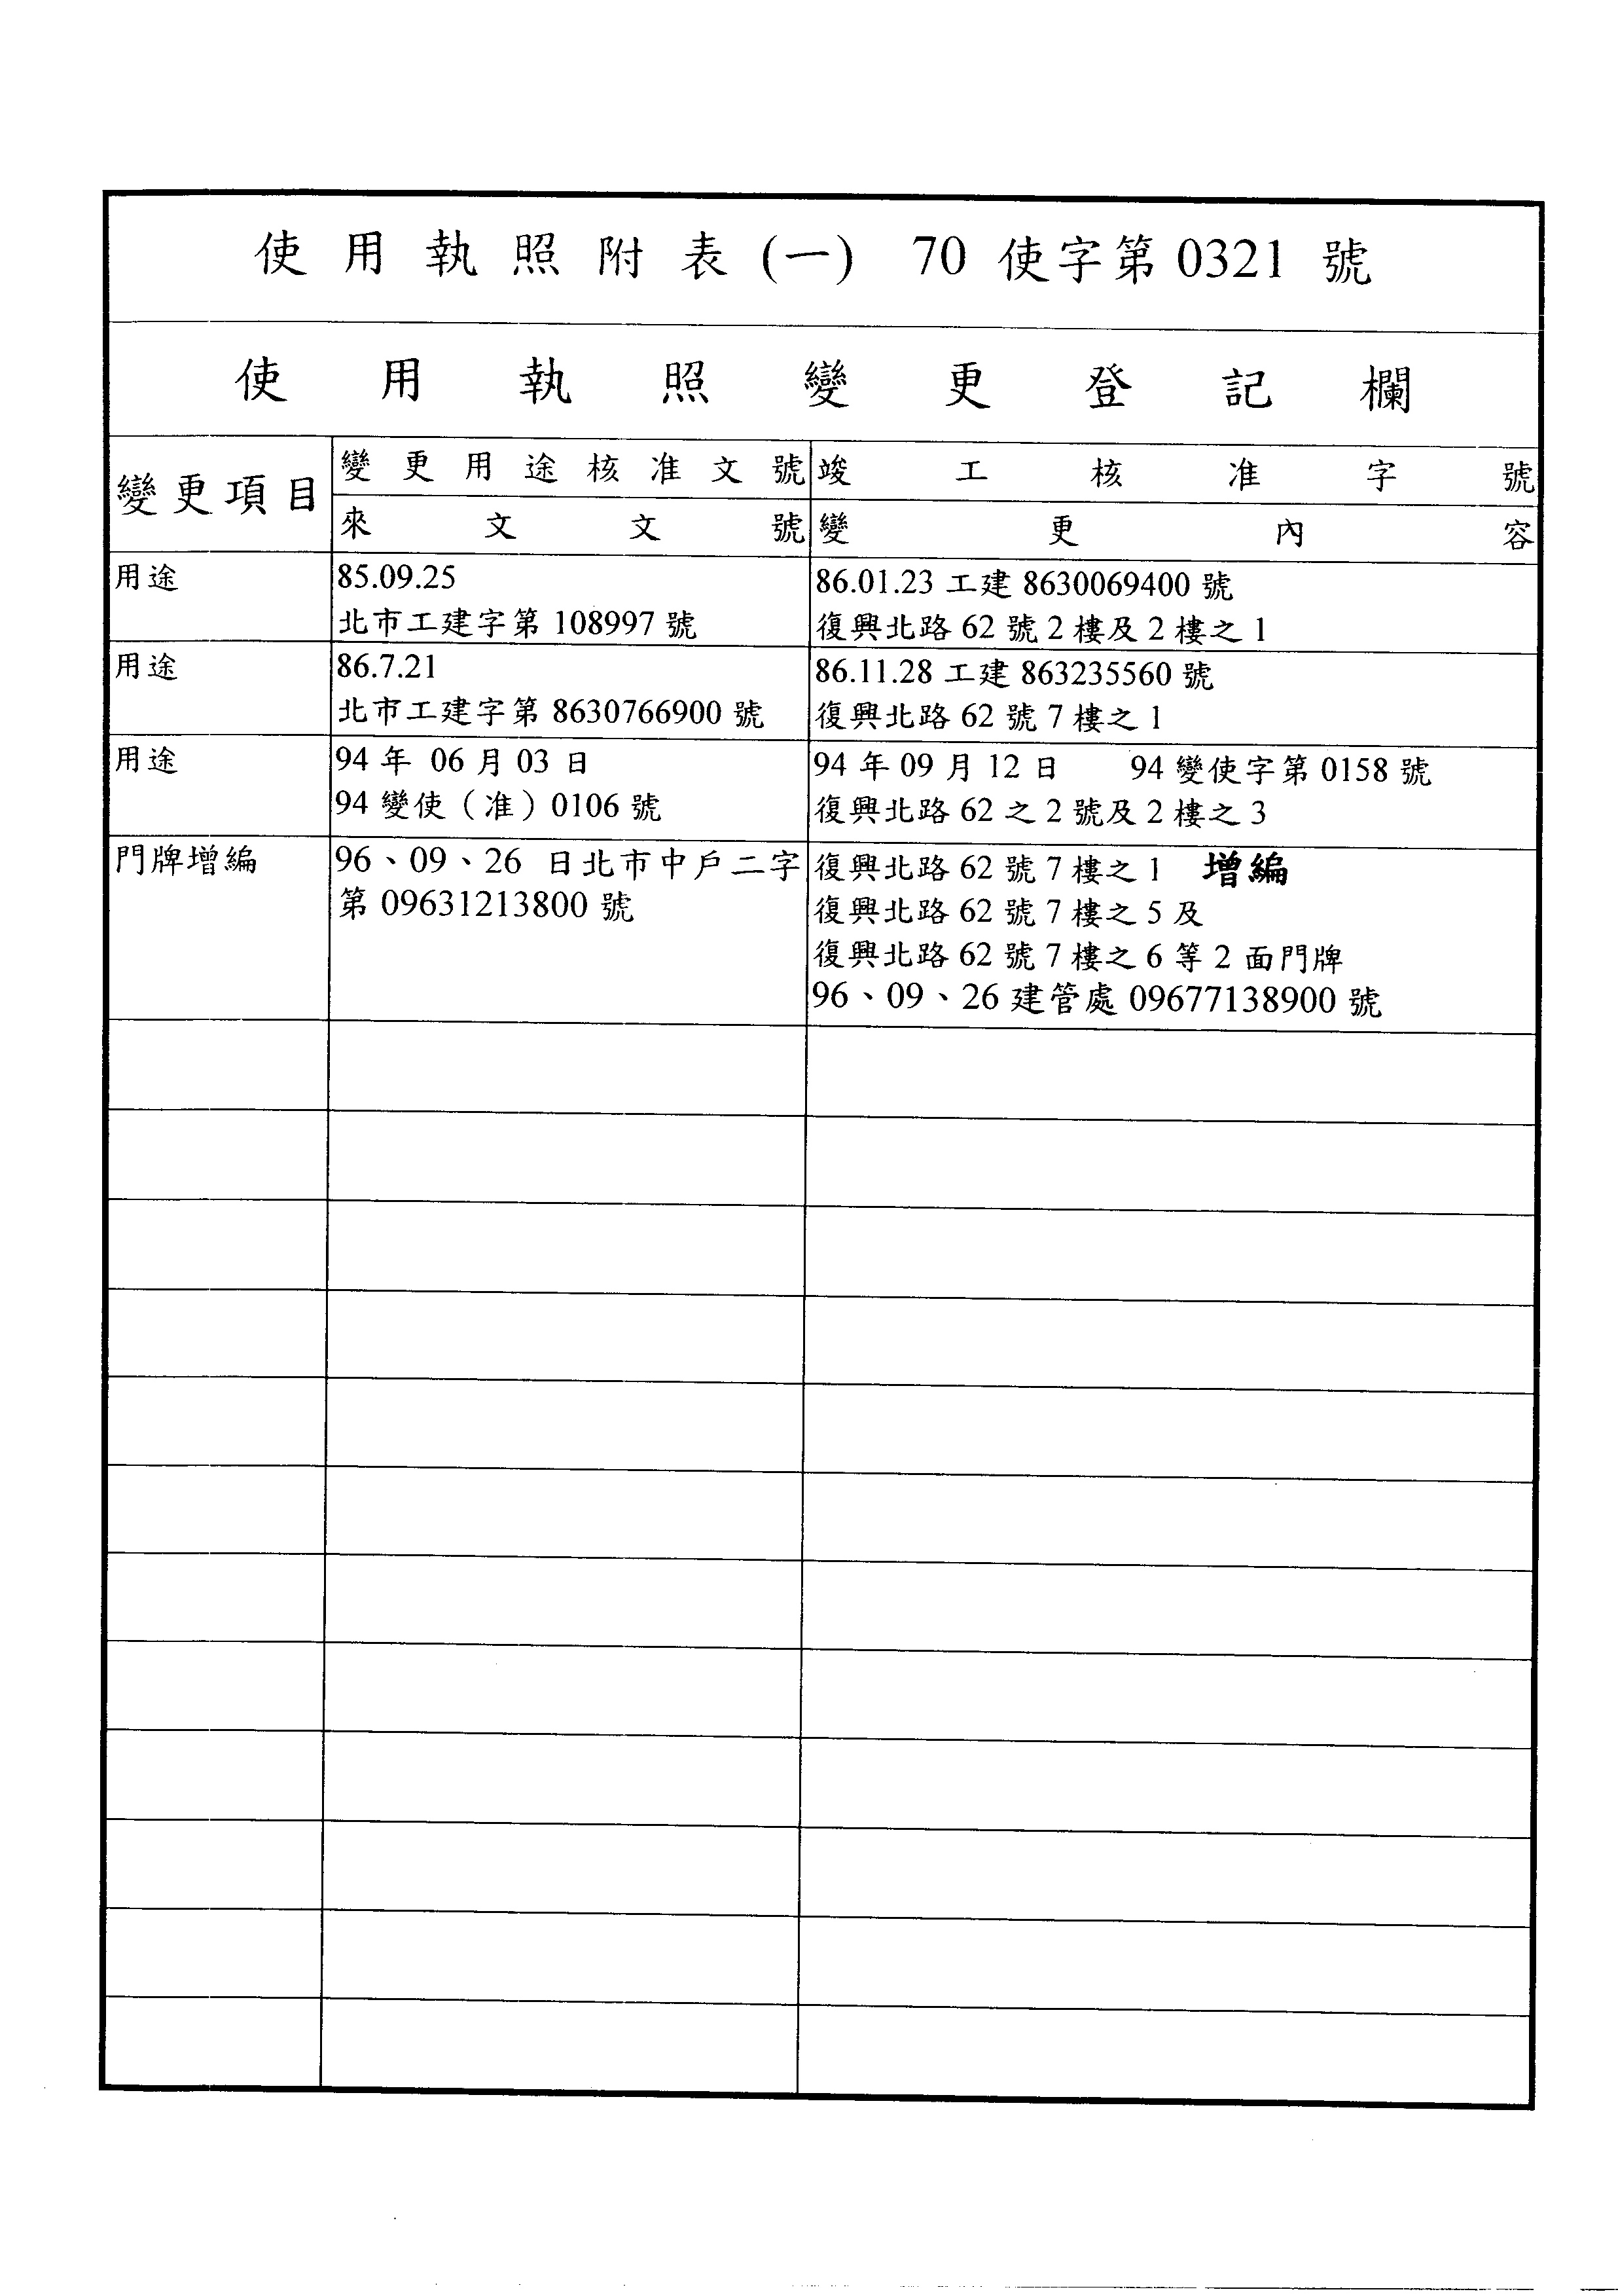 使用執照附表(一) 70 使字第 0321 號
使用執照變更登記欄
變更項目
變更用途核准文號
竣工核准字號
來文文號
變更內容
用途
85.09.25
北市工建字第 108997 號
86.01.23 工建 8630069400 號
復興北路 62 號 2 樓及 2 樓之 1
用途
86.7.21
北市工建字第 8630766900 號
86.11.28 工建 863235560 號
復興北路 62 號 7 樓之 1
用途
94 年 06 月 03 日
94 變使（准）0106 號
94 年 09 月 12 日 94 變使字第 0158 號
復興北路 62 之 2 號及 2 樓之 3
門牌增編
96、09、26 日北市中戶二字
第 09631213800 號
復興北路 62 號 7 樓之 1 增編
復興北路 62 號 7 樓之 5 及
復興北路 62 號 7 樓之 6 等 2 面門牌
96、09、26 建管處 09677138900 號